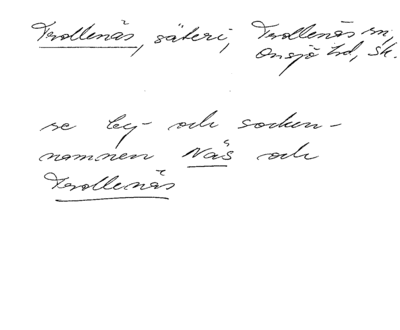 Trollenäs, säteri, Trollenäs sn,
Onsjö hd, Sk.
se by- och socken-
namnen Näs och
Trollenäs